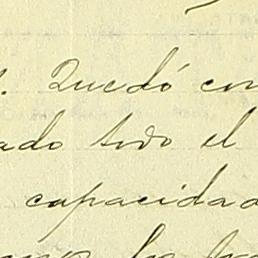 . Quedó con
ado todo el
capacidad